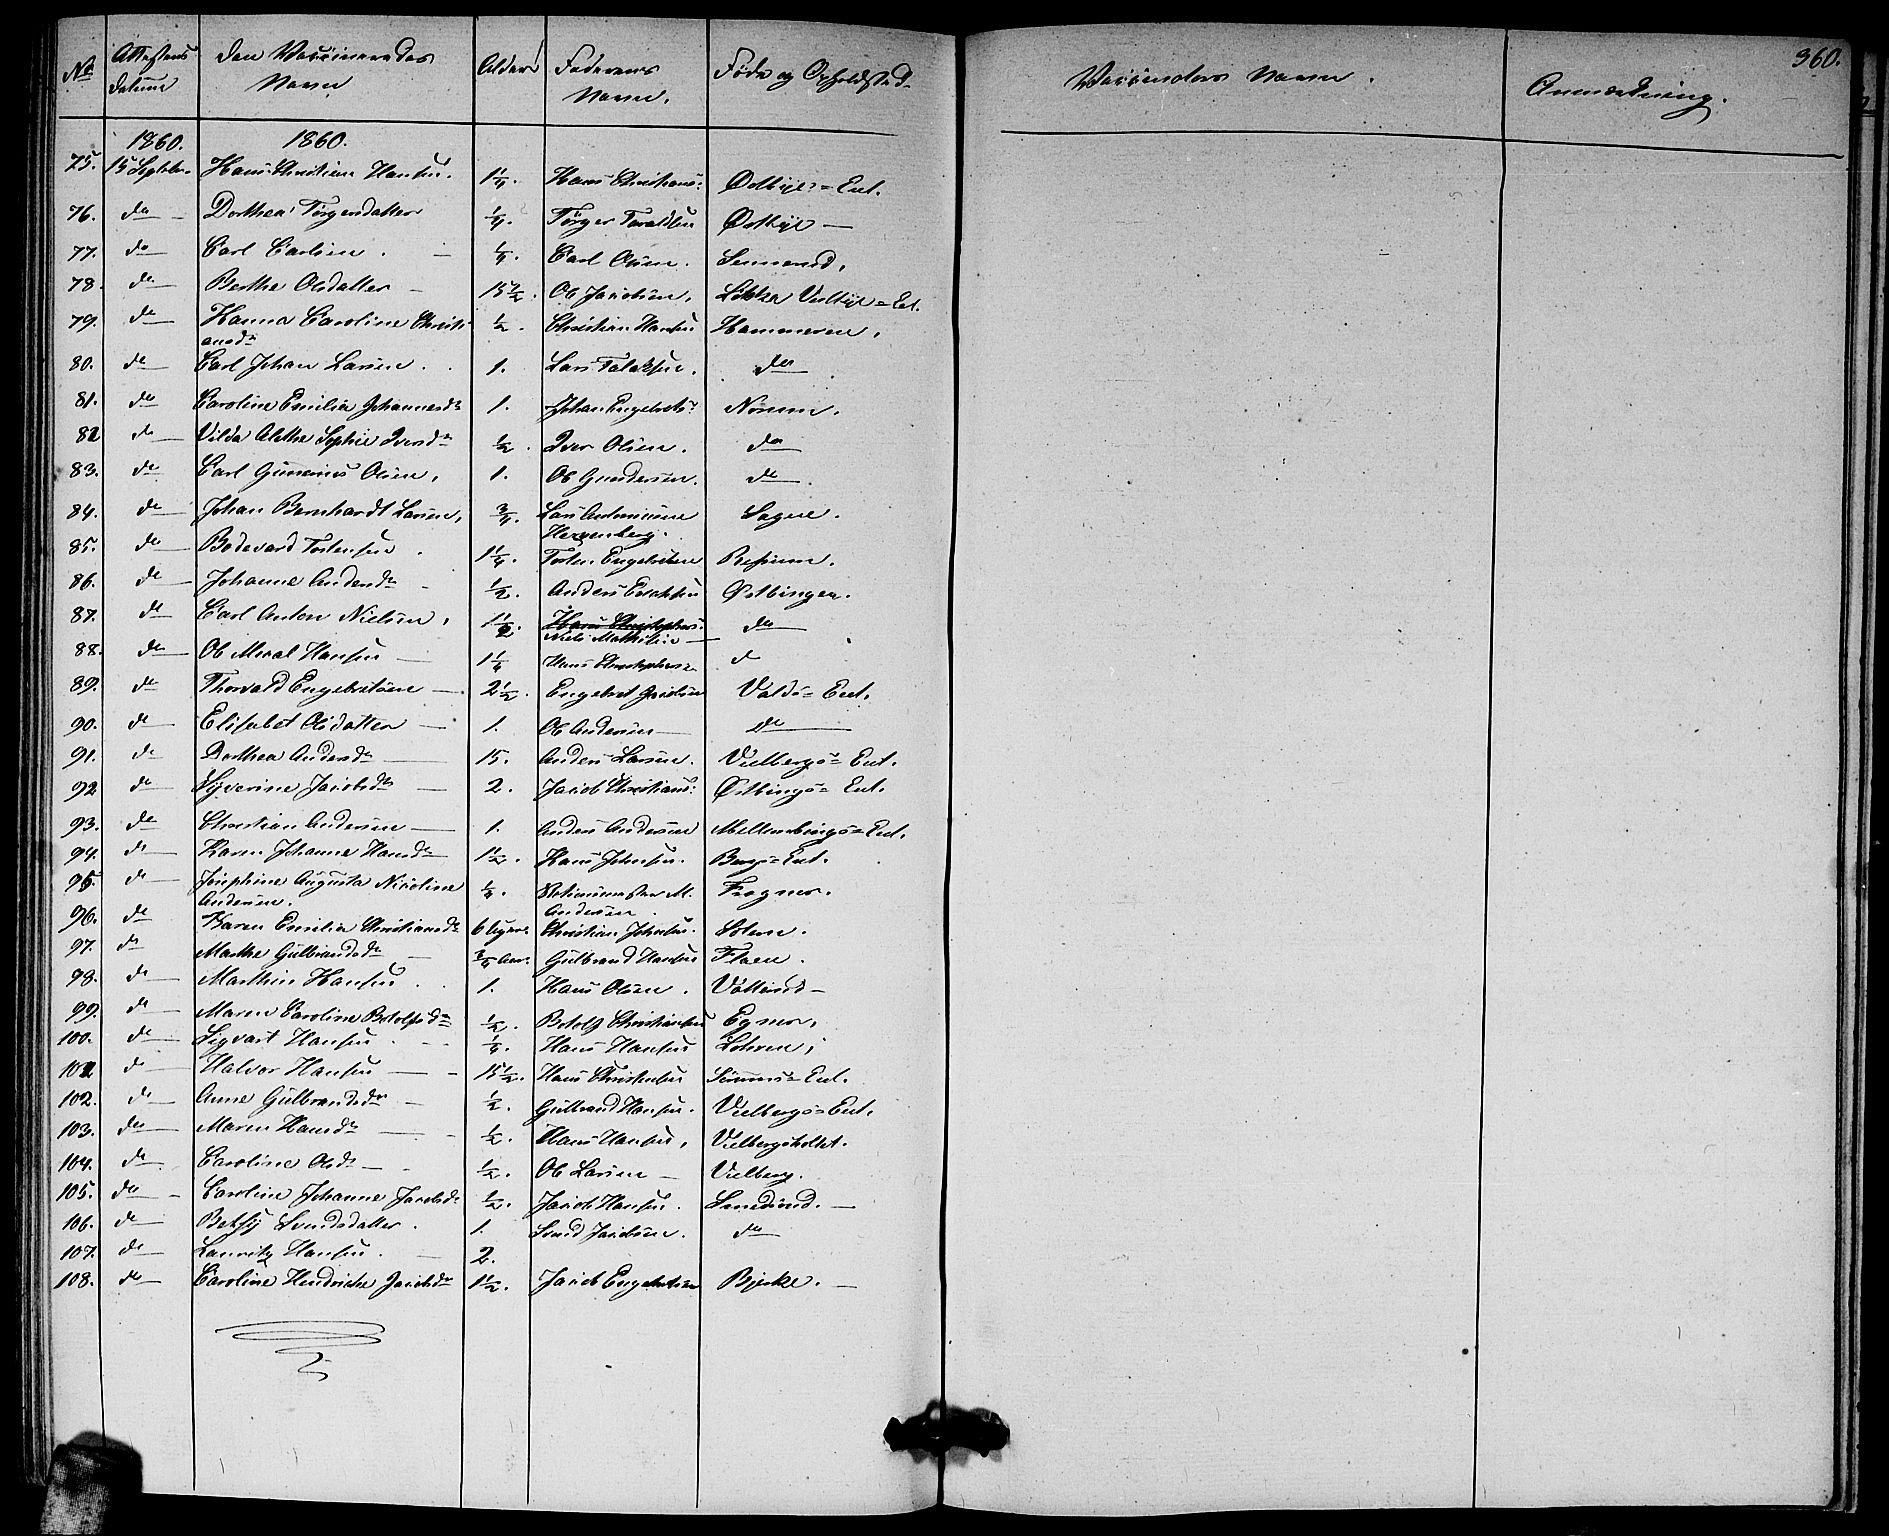 360.
No Attestens Datum Den Vaccineredes Navn Alder Faderens Navn. Føde og Opholdsted. Vaccinators Navn. Anmærkning.
1860. 1860.
75. 15 Septbr. Hans Christian Hansen. 1 1/4. Hans Christians: Østbye = Eet.
76. do Dorthea Törgersdatter 1/4. Törger Taraldsen Østbye —
77. do Carl Carlsen. 1/4. Carl Olsen.
78. do Berthe Olsdatter 15 1/2. Ole Jacobsen. Løkka Vestbye = Eet.
79. do Hanna Caroline Christi- 1/2. Christian Hansen Hammeren,
ansdr
80. do Carl Johan Larsen. 1. Lars Falaksen. do
81. do Caroline Emilie Johannesdr 1. Johan Engebrets: Norum.
82 do Vilda Alethe Sophie Iversdr 1/2. Iver Olsen. do
83. do Carl Gunerius Olsen. 1. Ole Gundersen. do
84. do Johan Bernhardt Larsen. 3/4. Lars Antonisene Sagene.
Herrenberg.
85. do Bodevard Tostensen 1 1/4. Tosten Engebretsen
86. do Johanne Andersdr 1/2. Anders Erichsen Østbingen.
87. do Carl Anton Nielsen, 1 1/2. Hans Christophers: do
Niels Mathisen
88. do Ole Meral Hansen 1 1/4 Hans Christophersen d
89. do Thorvald Engebretsen 2 1/2. Engebret Jacobsen Valds = Eet.
90. do Elisabet Olsdatter 1. Ole Andersen do
91. do Dorthea Andersdr 15. Anders Larsen. Vielbergs = Eet.
92 do Syverine Jacobsdr 2. Jacob Christians: Østbings = Eet.
93. do Christian Andersen 1. Anders Andersen Mellembings = Eet.
94. do Karen Johanne Hansdr 1 1/2. Hans Johnsen. Bergs = Eet.
95. do Josephine Augusta Nicoline 1/4. Stationsmester M. Frogner.
Andersen. Andersen
96. do Karen Emilie Christiansdr 6 Uger Christian Johnsen. Solem.
97. do Marthe Gulbrandsdr 3/4 Aar. Gulbrand Hansen Flaen.
98. do Marthin Hansen 1. Hans Olsen. Vøllaund —
99. do Maren Caroline Botolfsdr 1/2. Botolf Christiansen Egner.
100. do Sigvart Hansen 1/4. Hans Hansen
101 do Halvor Hansen 15 1/2. Hans Christensen = Eet.
102. do Anne Gulbrandsdr 1/2. Gulbrand Hansen. Vielbergs = Eet.
103. do Maren Hansdr 1/2. Hans Hansen, Vielbergsholtet.
104. do Caroline Olsdr 1/2. Ole Larsen Vielberg.
105. do Caroline Johanne Jacobsdr 1/2. Jacob Hansen.
106. do Betsy Svendsdatter. 1. Svend Jacobsen. do
107. do Lauritz Hansen. 2.
108. do Caroline Hendrikke Jacobsdr 1 1/2. Jacob Engebretsen Bjerke. —